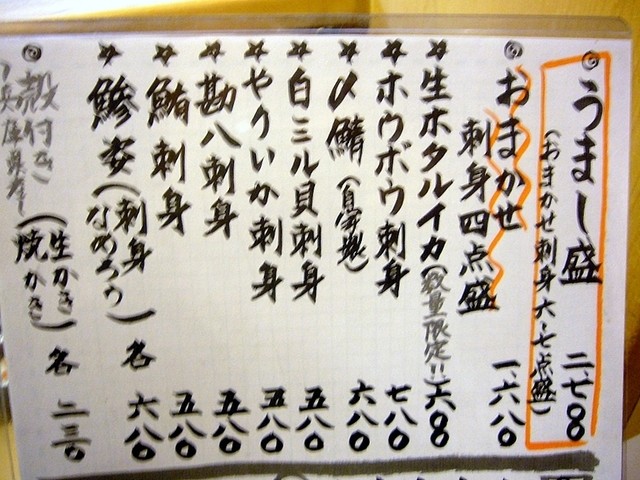 ◎うまし盛 二、七〇〇
(おまかせ刺身六〜七点盛)
◎おまかせ
刺身四点盛 一、六八〇
☆生ホタルイカ(数量限定!!) 六八〇
☆ホウボウ刺身 七八〇
☆〆鯖(自家製) 六八〇
☆白ミル貝刺身 五八〇
☆やりいか刺身 五八〇
☆勘八刺身 五八〇
☆鮪刺身 五八〇
☆鯵姿(刺身 なめろう) 各 六八〇
◎殻付き(生かき 焼かき) 各 二三〇
(兵庫県産)